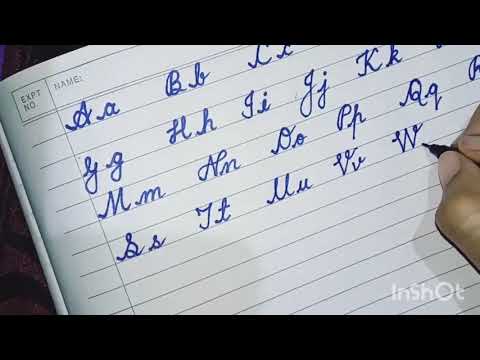 EXPT. NO.
NAME:
A a B b C c
G g H h I i J j K k
M m N n O o P p Q q R
S s T t U u V v W
InShOt